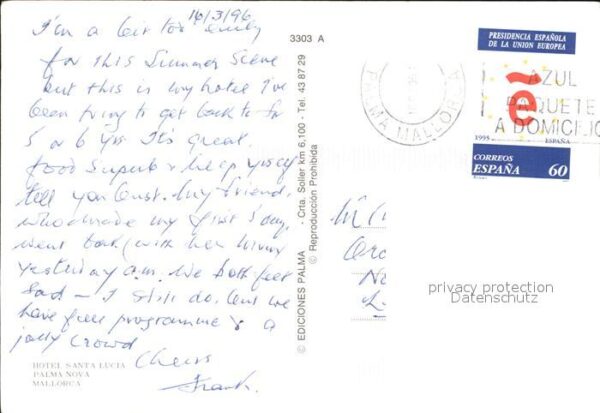 16/3/96
I'm a bit too early
for this Summer Scene
but this is my hotel I've
been trying to get back to for
5 or 6 yrs. It's great.
food Superb &
tell you lust. My friend,
who made my first 5 days,
went back (with her
yesterday a.m. We both feel
Sad — I still do, but we
have full programme & a
jolly crowd
Cheers
Frank.
HOTEL SANTA LUCIA
PALMA NOVA
MALLORCA
3303 A
© EDICIONES PALMA - Crta. Soller km 6,100 - Tel. 43 87 29
© Reproducción Prohibida
PALMA MALLORCA
PRESIDENCIA ESPAÑOLA
DE LA UNION EUROPEA
AZUL
PAQUETE
A DOMICILIO
1995 ESPAÑA
CORREOS
ESPAÑA 60
privacy protection
Datenschutz